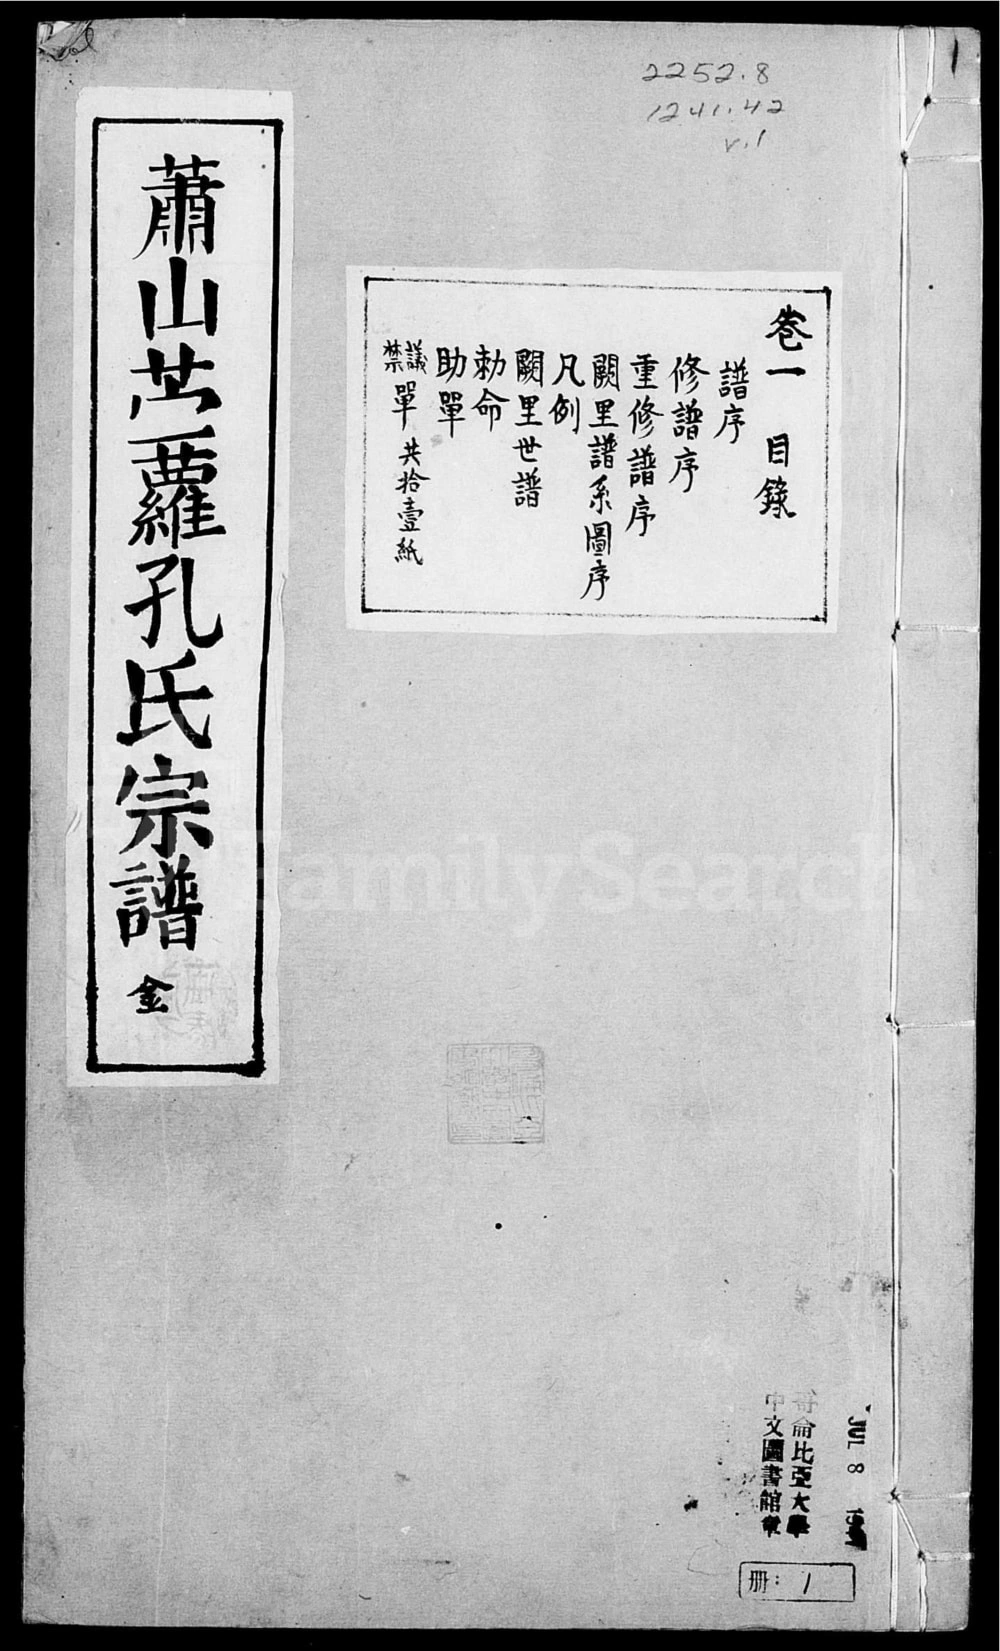 2252.8
1241.42
v.1
卷一 目錄
譜序
修譜序
重修譜序
闕里譜系圖序
凡例
闕里世譜
勅命
助單
議禁單 共拾壹紙
蕭山苎蘿孔氏宗譜 金
FamilySearch
哥倫比亞大學
中文圖書館章
JUL 8
冊: 1